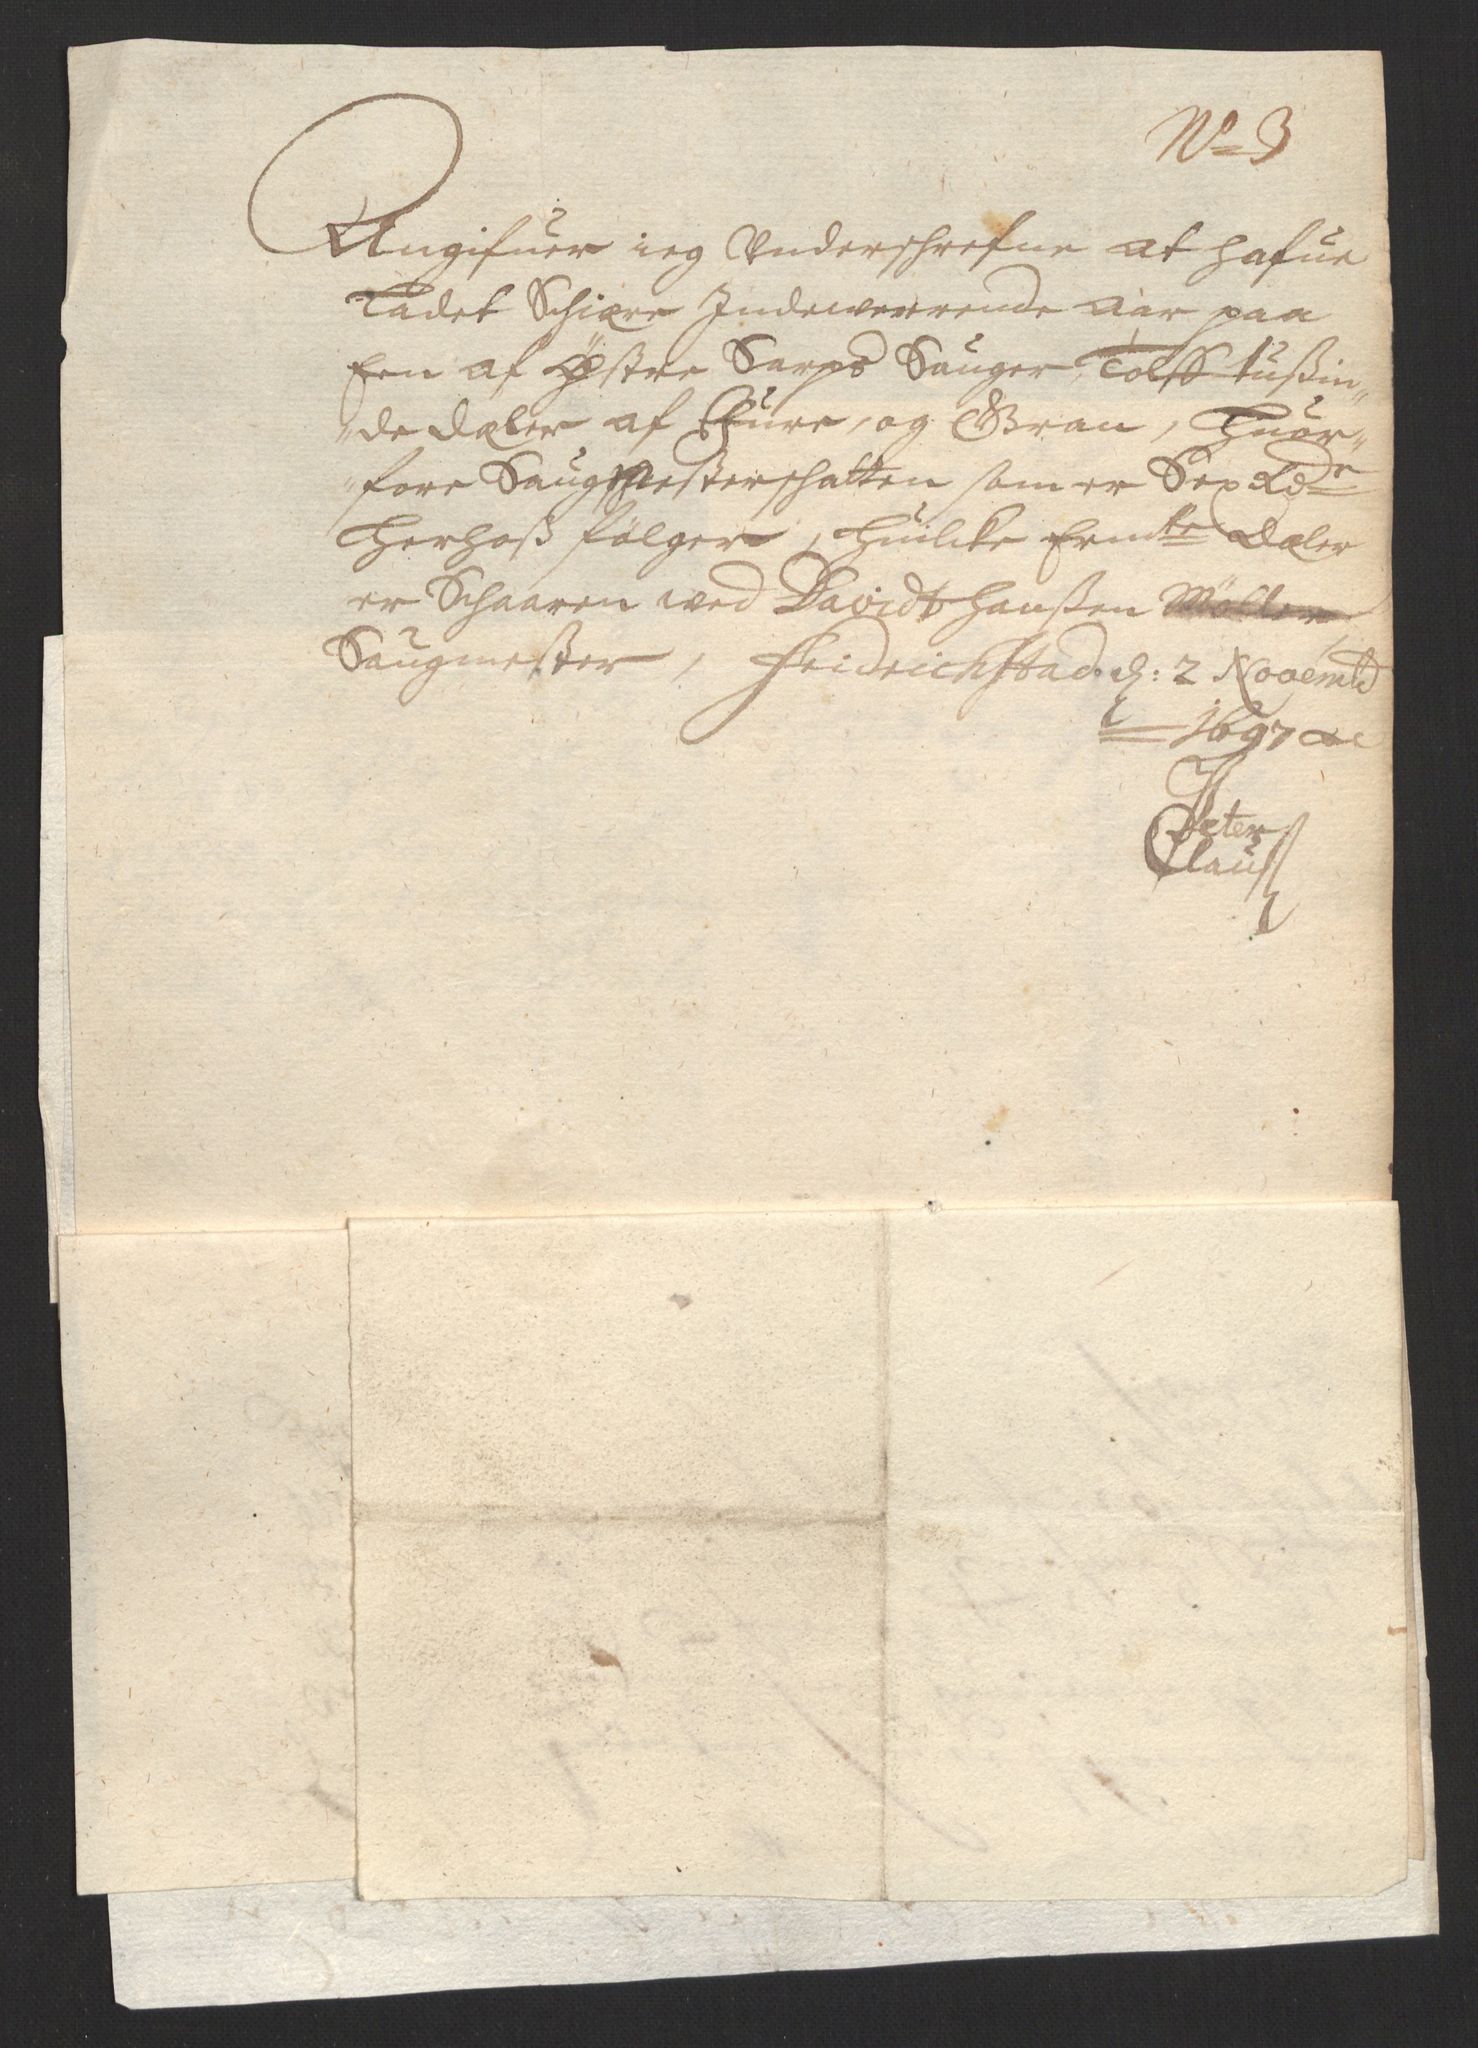 No 3
Angifuer ieg Underschrefne at hafue
ladet Schiære Indewerende aar paa
Een af Østre Sarps Sauger, Tolff tußin-
-de dæler af Fure, og Gran, huor-
-fore Saugmesterschatten som er Sex Rdr
herhoß følger, huilcke Ermte dæler
er Schaaren ved Davidt Hanßen Møller
Saugmester, Fridrichstad d: 2 Novembr
1697
Peter
Clauß